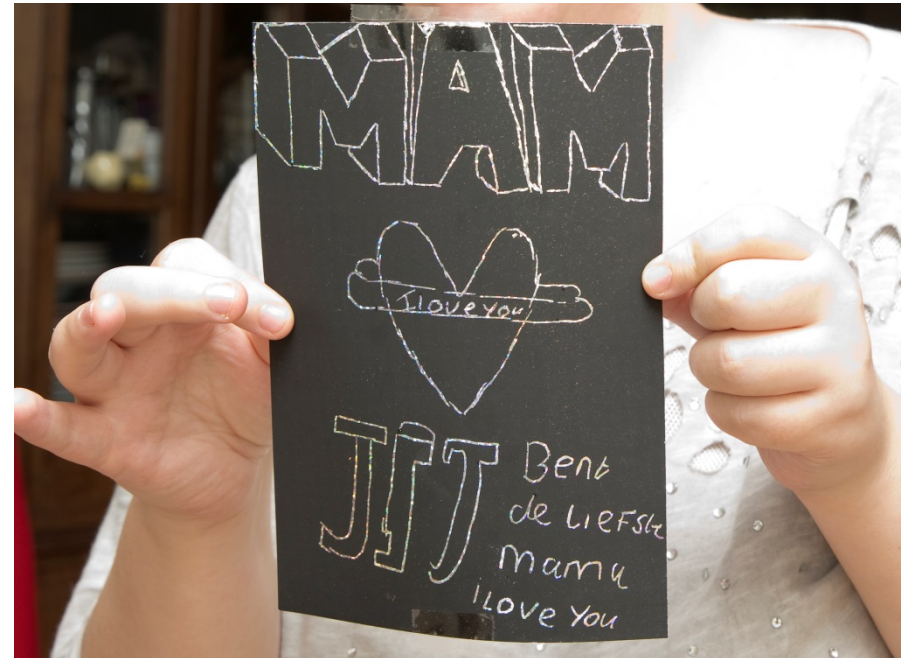 MAM
I love you
JIJ
Bent
de LIEFSte
mama
iLOVE You